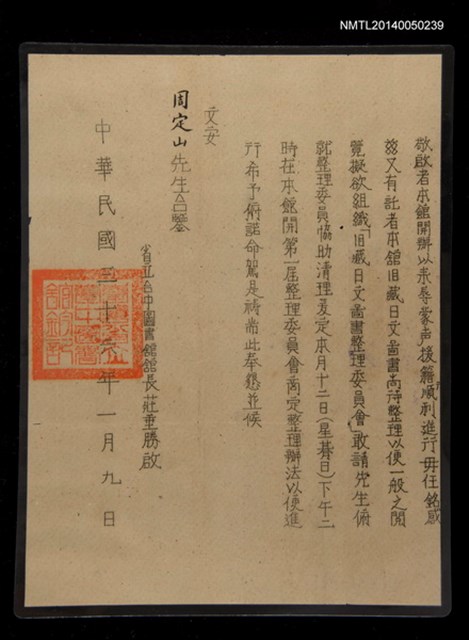 NMTL20140050239
敬啟者本館開辦以来辱蒙声援籍順利進行毋任銘感
茲又有託者本舘旧藏日文啚書尚待整理以便一般之閱
覽擬欲組織「旧藏日文啚書整理委員會」敢請先生俯
就整理委員協助清理爰定本月十二日(星期日)下午二
時在本舘開第一屆整理委員會商定整理辦法以便進
行希予俯諾命駕是禱耑此奉懇並候
文安
周定山先生台鑒
省立台中圖書舘舘長莊垂勝啟
中華民國三十六年一月九日